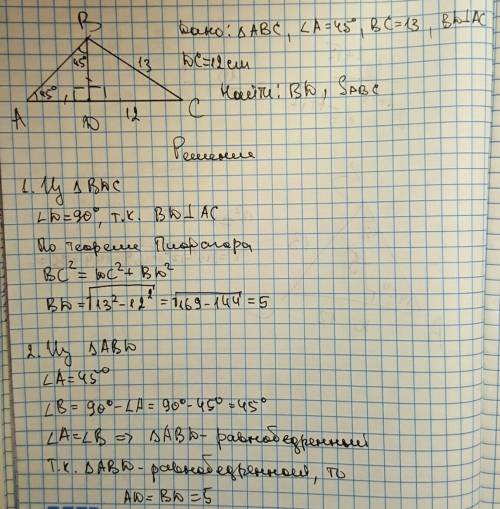 B
45°
13
A
45°
D
12
C
Дано: ΔABC, ∠A=45°, BC=13, BD⊥AC
DC=12см
Найти: BD, SABC
Решение
1. Из ΔBDC
∠D=90°, т.к. BD⊥AC
По теореме Пифагора
BC²=DC²+BD²
BD=√13²-12²=√169-144=5
2. Из ΔABD
∠A=45°
∠B=90°-∠A=90°-45°=45°
∠A=∠B => ΔABD-равнобедренный
Т.к. ΔABD-равнобедренный, то
AD=BD=5